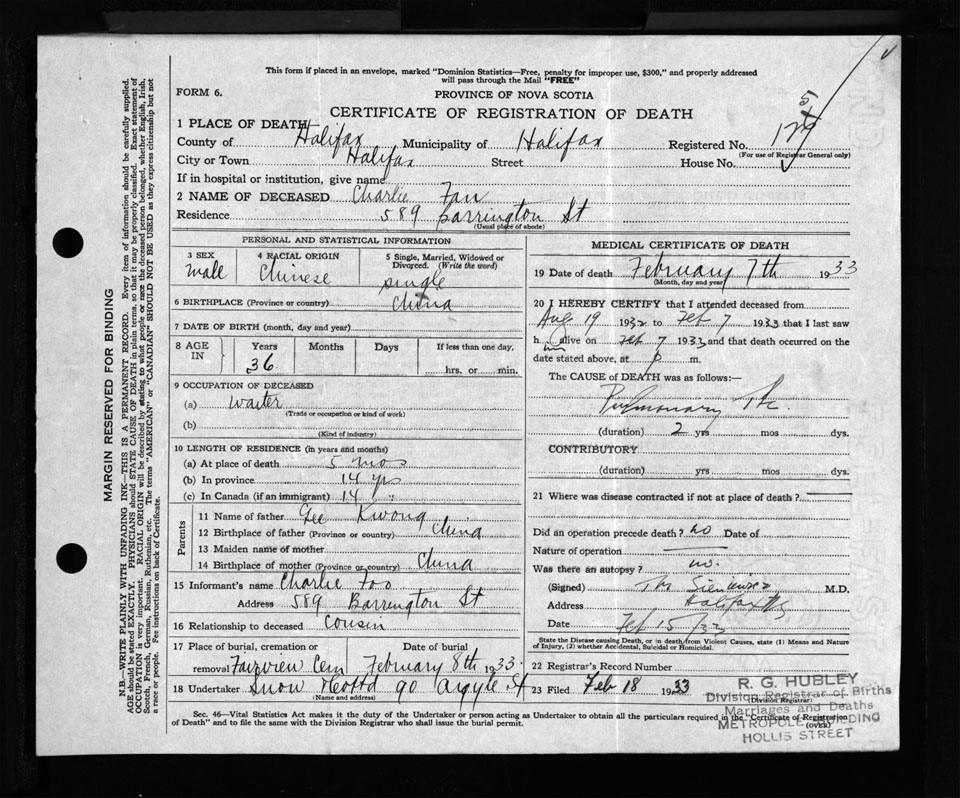 This form if placed in an envelope, marked "Dominion Statistics—Free, penalty for improper use, $300," and properly addressed
will pass through the Mail "FREE"
FORM 6.
PROVINCE OF NOVA SCOTIA
CERTIFICATE OF REGISTRATION OF DEATH
1 PLACE OF DEATH
County of Halifax Municipality of Halifax Registered No.
(For use of Registrar General only)
City or Town Halifax Street House No.
If in hospital or institution, give name
2 NAME OF DECEASED Charlie Fan
Residence 589 Barrington St
(Usual place of abode)
PERSONAL AND STATISTICAL INFORMATION
3 SEX male
4 RACIAL ORIGIN Chinese
5 Single, Married, Widowed or
Divorced. (Write the word)
single
6 BIRTHPLACE (Province or country) China
7 DATE OF BIRTH (month, day and year)
8 AGE IN Years Months Days If less than one day,
36 hrs. or min.
9 OCCUPATION OF DECEASED
(a) waiter
(Trade or occupation or kind of work)
(b)
(Kind of industry)
10 LENGTH OF RESIDENCE (in years and months)
(a) At place of death 5 mos
(b) In province 14 yrs
(c) In Canada (if an immigrant) 14 "
Parents
11 Name of father Gee Kwong
12 Birthplace of father (Province or country) China
13 Maiden name of mother
14 Birthplace of mother (Province or country) China
15 Informant's name Charlie Foo
Address 589 Barrington St
16 Relationship to deceased cousin
17 Place of burial, cremation or Date of burial
removal Fairview Cem February 8th 1933
18 Undertaker Snow 90 Argyle St
(Name and address)
MEDICAL CERTIFICATE OF DEATH
19 Date of death February 7th 1933
(Month, day and year)
20 I HEREBY CERTIFY that I attended deceased from
Aug 19 1932 to Feb 7 1933 that I last saw
h im alive on Feb 7 1933 and that death occurred on the
date stated above, at p m.
The CAUSE of DEATH was as follows:—
Pulmonary Tbc.
(duration) 2 yrs mos dys.
CONTRIBUTORY
(duration) yrs mos dys.
21 Where was disease contracted if not at place of death?
Did an operation precede death? no Date of
Nature of operation
Was there an autopsy? no.
(Signed) M.D.
Address Halifax NS
Date Feb 15/33
State the Disease causing Death, or in death from Violent Causes, state (1) Means and Nature
of Injury, (2) whether Accidental, Suicidal or Homicidal.
22 Registrar's Record Number
23 Filed Feb 18 1933
(Division Registrar)
R. G. HUBLEY
Division Registrar of Births
Marriages and Deaths
METROPOLE BUILDING
HOLLIS STREET
Sec. 46—Vital Statistics Act makes it the duty of the Undertaker or person acting as Undertaker to obtain all the particulars required in the "Certificate of Registration
of Death" and to file the same with the Division Registrar who shall issue the burial permit.
(OVER)
MARGIN RESERVED FOR BINDING
N.B.—WRITE PLAINLY WITH UNFADING INK—THIS IS A PERMANENT RECORD. Every item of information should be carefully supplied.
AGE should be stated EXACTLY. PHYSICIANS should STATE CAUSE OF DEATH in plain terms, so that it may be properly classified. Exact statement of
OCCUPATION is very important. RACIAL ORIGIN will be described by stating to what people or race the deceased person belonged, whether English, Irish,
Scotch, French, German, Russian, Ruthenian, etc. The terms "AMERICAN" or "CANADIAN" SHOULD NOT BE USED as they express citizenship but not
a race or people. Fee instructions on back of Certificate.